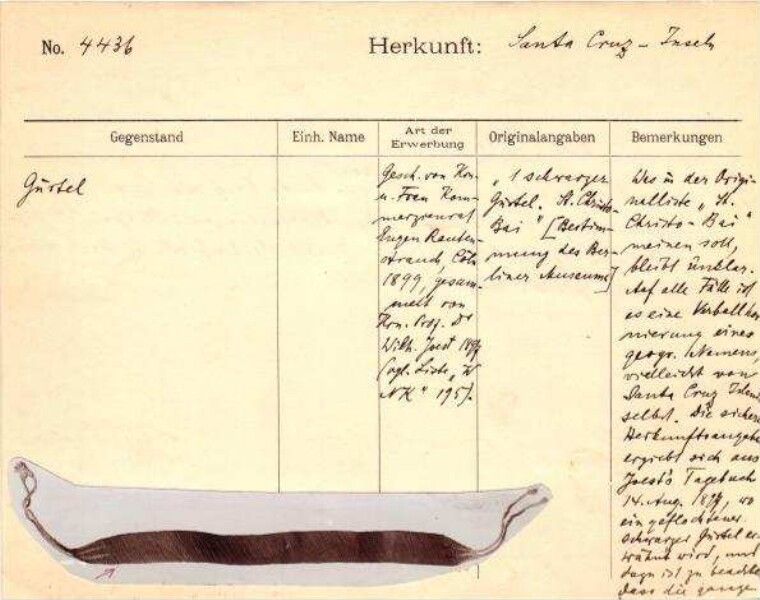 No. 4436
Herkunft: Santa Cruz - Inseln
Gegenstand
Einh. Name
Art der
Erwerbung
Originalangaben
Bemerkungen
Gürtel
Gesch. von Hrn.
u. Frau Kom-
merzienrat
Eugen Rauten-
strauch, Cöln
1899, gesam-
melt von
Hrn. Prof. Dr
Wilh. Joest 1897
(vgl. Liste „W
NK" 195).
„1 schwarzer
Gürtel. St. Christo-
Bai" [Bestim-
mung des Ber-
liner Museums]
Was in der Origi-
nalliste „St.
Christo-Bai"
meinen soll,
bleibt unklar.
Auf alle Fälle ist
es eine Verballhor
nisierung eines
geogr. Namens,
vielleicht von
Santa Cruz Inseln
selbst. Die sichere
Herkunftsangabe
ergiebt sich aus
Joest's Tagebuch
14. Aug. 1897, wo
ein geflochtener
schwarzer Gürtel er-
wähnt wird, und
dazu ist zu beachten
dass die ganze